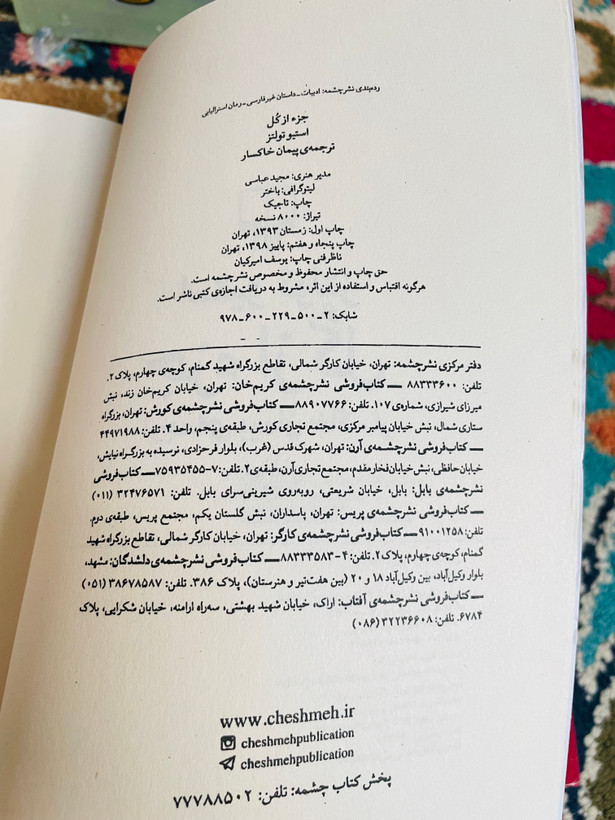 رده‌بندی نشر چشمه: ادبیات ـ داستان غیرفارسی ـ رمان استرالیایی
جزء از کُل
استیو تولتز
ترجمه‌ی پیمان خاکسار
مدیر هنری: مجید عباسی
لیتوگرافی: باختر
چاپ: تاجیک
تیراژ: ۸۰۰۰ نسخه
چاپ اول: زمستان ۱۳۹۳، تهران
چاپ پنجاه و هفتم: پاییز ۱۳۹۸، تهران
ناظر فنی چاپ: یوسف امیرکیان
حق چاپ و انتشار محفوظ و مخصوص نشر چشمه است.
هرگونه اقتباس و استفاده از این اثر، مشروط به دریافت اجازه‌ی کتبی ناشر است.
شابک: ۲ـ۵۰۰ـ۲۲۹ـ۶۰۰ـ۹۷۸
دفتر مرکزی نشر چشمه: تهران، خیابان کارگر شمالی، تقاطع بزرگراه شهید گمنام، کوچه‌ی چهارم، پلاک ۲.
تلفن: ۸۸۳۳۳۶۰۰ ــ کتاب‌فروشی نشر چشمه‌ی کریم‌خان: تهران، خیابان کریم‌خان زند، نبش
میرزای شیرازی، شماره‌ی ۱۰۷. تلفن: ۸۸۹۰۷۷۶۶ ــ کتاب‌فروشی نشر چشمه‌ی کورش: تهران، بزرگراه
ستاری شمال، نبش خیابان پیامبر مرکزی، مجتمع تجاری کورش، طبقه‌ی پنجم، واحد ۴. تلفن: ۴۴۹۷۱۹۸۸
ــ کتاب‌فروشی نشر چشمه‌ی آرن: تهران، شهرک قدس (غرب)، بلوار فرحزادی، نرسیده به بزرگراه نیایش،
خیابان حافظی، نبش خیابان فخار مقدم، مجتمع تجاری آرن، طبقه‌ی ۲. تلفن: ۷ـ۷۵۹۳۵۴۵۵ ــ کتاب‌فروشی
نشر چشمه‌ی بابل: بابل، خیابان شریعتی، روبه‌روی شیرینی‌سرای بابل. تلفن: ۳۲۴۷۶۵۷۱ (۰۱۱)
ــ کتاب‌فروشی نشر چشمه‌ی پریس: تهران، پاسداران، نبش گلستان یکم، مجتمع پریس، طبقه‌ی دوم.
تلفن: ۹۱۰۰۱۲۵۸ ــ کتاب‌فروشی نشر چشمه‌ی کارگر: تهران، خیابان کارگر شمالی، تقاطع بزرگراه شهید
گمنام، کوچه‌ی چهارم، پلاک ۲. تلفن: ۴ـ۸۸۳۳۳۵۸۳ ــ کتاب‌فروشی نشر چشمه‌ی دلشدگان: مشهد،
بلوار وکیل‌آباد، بین وکیل‌آباد ۱۸ و ۲۰ (بین هفت‌تیر و هنرستان)، پلاک ۳۸۶. تلفن: ۳۸۶۷۸۵۸۷ (۰۵۱)
ــ کتاب‌فروشی نشر چشمه‌ی آفتاب: اراک، خیابان شهید بهشتی، سه‌راه ارامنه، خیابان شکرایی، پلاک
۶۷۸۴. تلفن: ۳۲۲۳۶۶۰۸ (۰۸۶)
www.cheshmeh.ir
cheshmehpublication
cheshmehpublication
پخش کتاب چشمه: تلفن: ۷۷۷۸۸۵۰۲